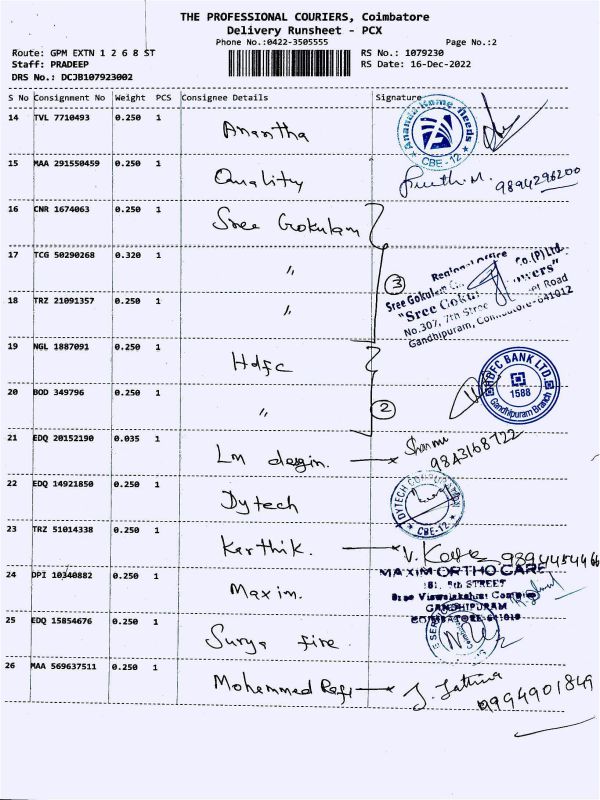 THE PROFESSIONAL COURIERS, Coimbatore
Delivery Runsheet - PCX
Phone No.:0422-3505555 Page No.:2
Route: GPM EXTN 1 2 6 8 ST RS No.: 1079230
Staff: PRADEEP RS Date: 16-Dec-2022
DRS No.: DCJB107923002
S No Consignment No Weight PCS Consignee Details Signature
14 TVL 7710493 0.250 1 Anantha
Ananda Home Needs
CBE-12
15 MAA 291550459 0.250 1 Quality 9894296200
16 CNR 1674063 0.250 1 Sree Gokulam
17 TCG 50290268 0.320 1 "
3
Regional Office
Sree Gokulam Co.(P)Ltd.
18 TRZ 21091357 0.250 1 "
No.307, 7th Street Road
Gandhipuram, Coimbatore-641012
19 NGL 1887091 0.250 1 Hdfc
HDFC BANK LTD
1588
Gandhipuram Branch
20 BOD 349796 0.250 1 "
2
21 EDQ 20152190 0.035 1 Lm design. 9843168722
22 EDQ 14921850 0.250 1 Dytech
DYTECH
CBE-12
23 TRZ 51014338 0.250 1 Karthik.
24 DPI 10340882 0.250 1 Maxim.
MAXIM ORTHO CARE
GANDHIPURAM
25 EDQ 15854676 0.250 1 Surya fire
26 MAA 569637511 0.250 1 Mohemmed Rafi 9994901849